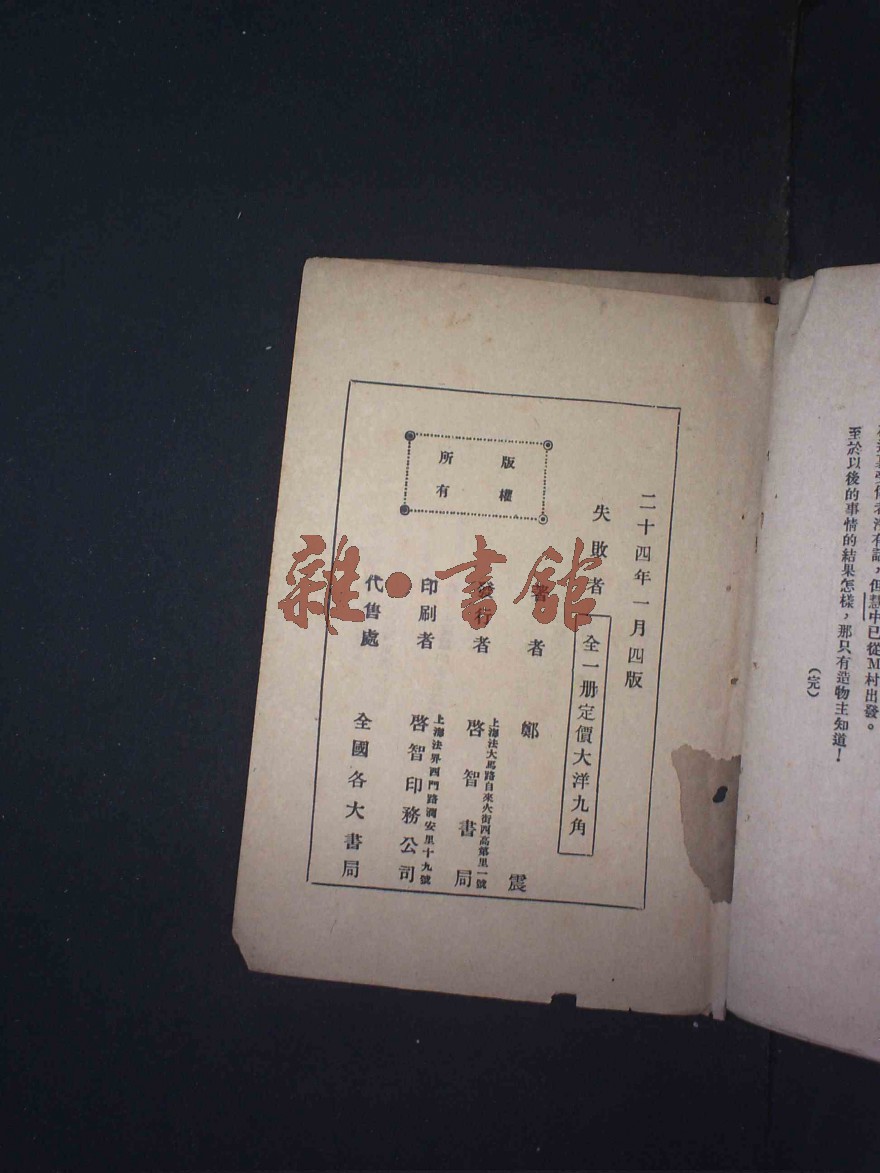 有話，但慧中已從M村出發。
至於以後的事情的結果怎樣，那只有造物主知道！
（完）
二十四年一月四版
失敗者
全一册定價大洋九角
著者 鄭震
發行者 啓智書局
上海法大馬路自來火街西高第里一號
印刷者 啓智印務公司
上海法界西門路潤安里十九號
代售處 全國各大書局
版權
所有
雜·書舘